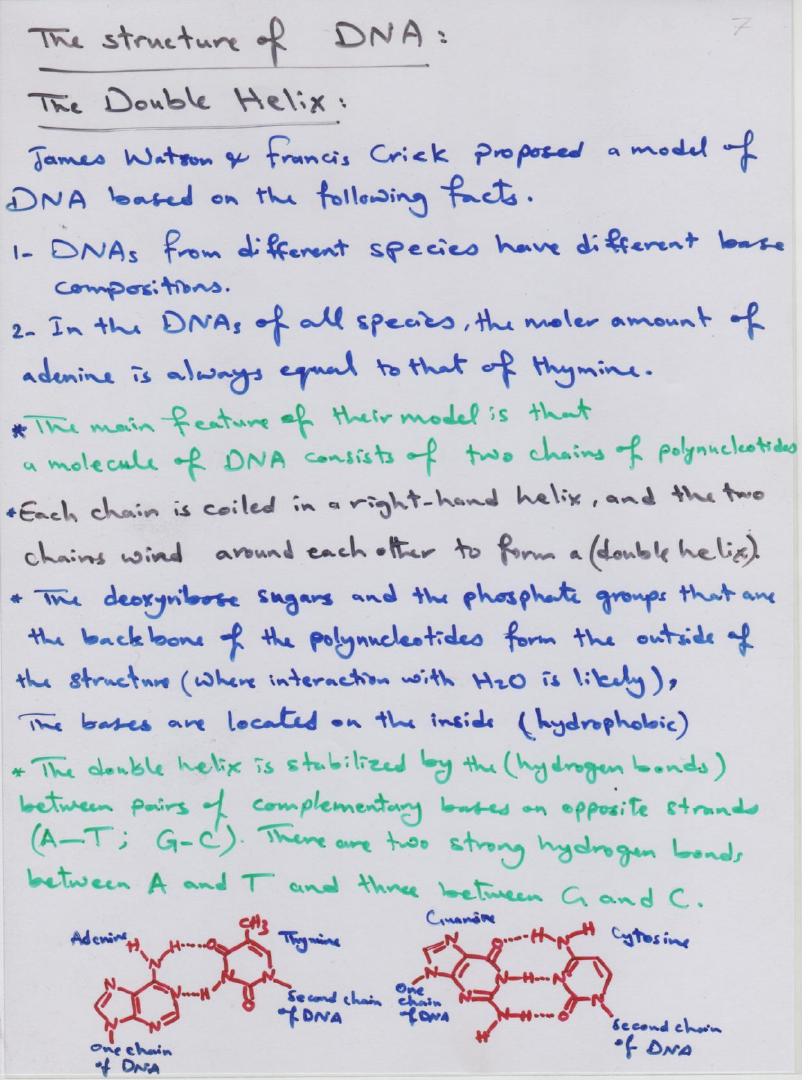 7
The structure of DNA:
The Double Helix:
James Watson & Francis Crick proposed a model of
DNA based on the following facts.
1- DNAs from different species have different base
compositions.
2- In the DNAs of all species, the moler amount of
adenine is always equal to that of thymine.
* The main feature of their model is that
a molecule of DNA consists of two chains of polynucleotides
* Each chain is coiled in a right-hand helix, and the two
chains wind around each other to form a (double helix).
* The deoxyribose sugars and the phosphate groups that are
the backbone of the polynucleotides form the outside of
the structure (where interaction with H2O is likely),
The bases are located on the inside (hydrophobic)
* The double helix is stabilized by the (hydrogen bonds)
between pairs of complementary bases on opposite strands
(A-T; G-C). There are two strong hydrogen bonds
between A and T and three between G and C.
Adenine
H
H
O
CH3
Thymine
N
N
N
H
N
N
O
N
N
Second chain
of DNA
One chain
of DNA
Guanine
N
O
H
N
H
Cytosine
N
N
H
N
N
N
H
O
N
H
One
chain
of DNA
Second chain
of DNA